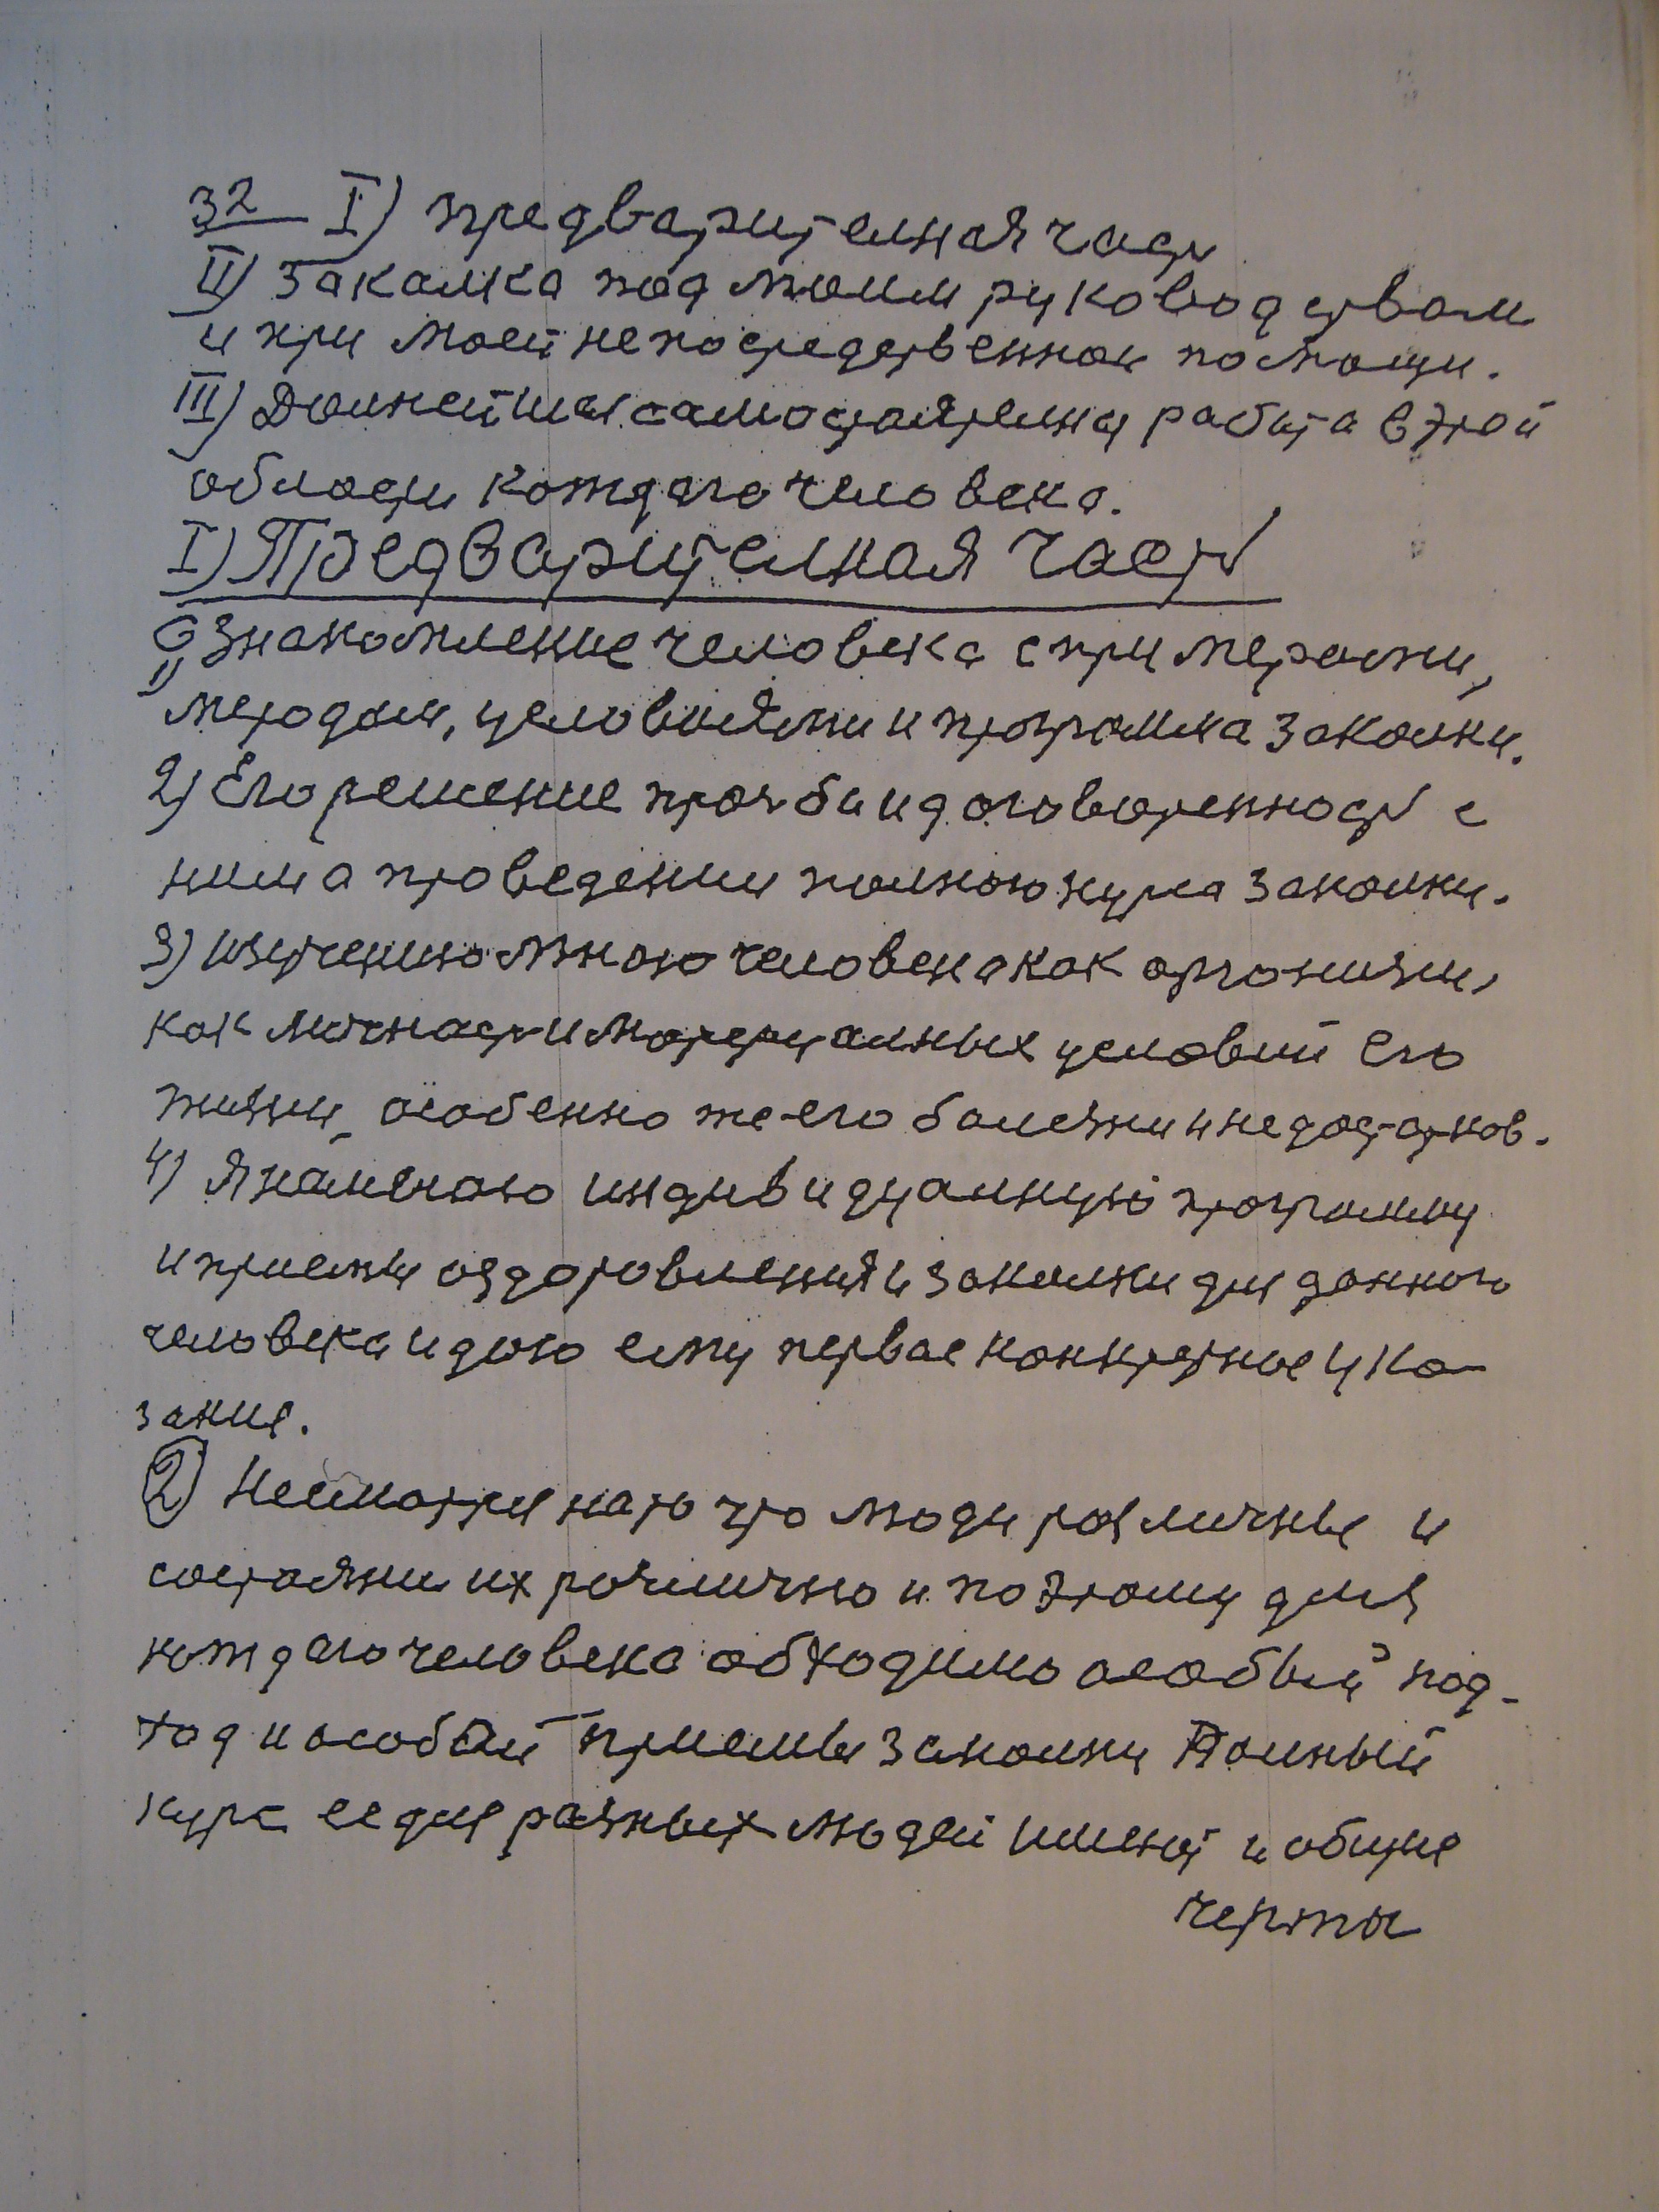 32 I) предварителная част
II) Закалка под моим руководством
и при моей непосредственной помощи.
III) Далнейшая самостоятелная работа в этой
области каждого человека.
I) Предварителная част
1) Ознакомление человека с примерами,
методам, условиями и программа закалки.
2) Его решение прозби и договоренност с
ним о проведении полного курса закалки.
3) изучению мною человека как организм,
как личности и материалных условий его
жизни, особенно же его болезни и недостатков.
4) Я намечаю индивидуалную программу
и приемы оздоровления и закалки для данного
человека и даю ему первое конкретное ука-
зание.
2) Несмотря на то что люди различные и
состояние их различно и поэтому для
каждого человека обходимо особый под-
ход и особый приемы закалки Полный
курс ее для разных людей имеют и общие
черты